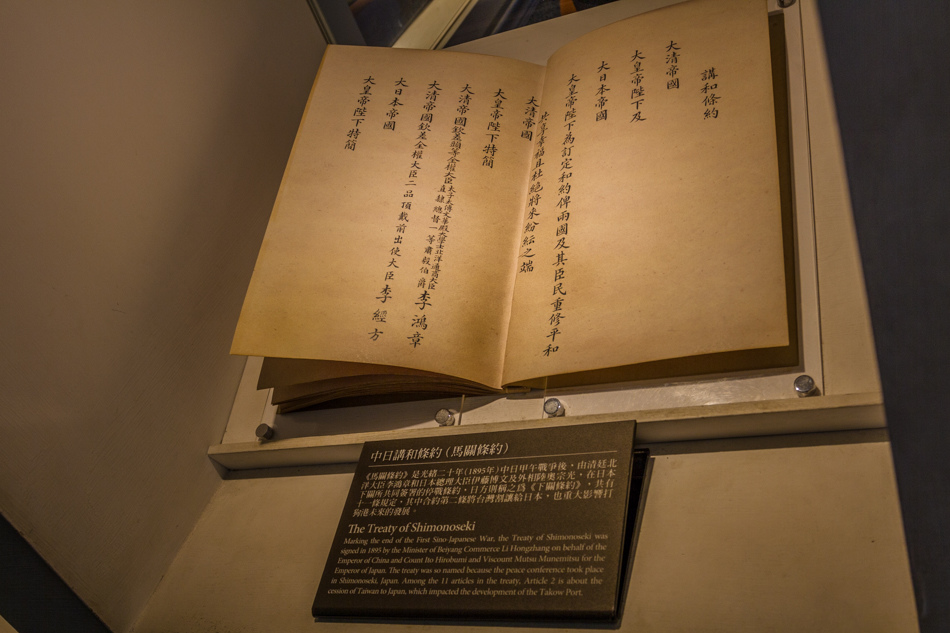 講和條約
大清帝國
大皇帝陛下及
大日本帝國
大皇帝陛下為訂定和約俾兩國及其臣民重修平和
共享幸福且杜絕將來紛紜之端
大清帝國
大皇帝陛下特簡
大清帝國欽差頭等全權大臣太子太傅文華殿大學士北洋通商大臣直隸總督一等肅毅伯爵李鴻章
大清帝國欽差全權大臣二品頂戴前出使大臣李經方
大日本帝國
大皇帝陛下特簡
中日講和條約(馬關條約)
《馬關條約》是光緒二十年(1895年)中日甲午戰爭後,由清廷北
洋大臣李鴻章和日本總理大臣伊藤博文及外相陸奧宗光,在日本
下關所共同簽署的停戰條約,日方則稱之為《下關條約》,共有
十一條規定,其中合約第二條將台灣割讓給日本,也重大影響打
狗港未來的發展。
The Treaty of Shimonoseki
Marking the end of the First Sino-Japanese War, the Treaty of Shimonoseki was
signed in 1895 by the Minister of Beiyang Commerce Li Hongzhang on behalf of the
Emperor of China and Count Ito Hirobumi and Viscount Mutsu Munemitsu for the
Emperor of Japan. The treaty was so named because the peace conference took place
in Shimonoseki, Japan. Among the 11 articles in the treaty, Article 2 is about the
cession of Taiwan to Japan, which impacted the development of the Takow Port.